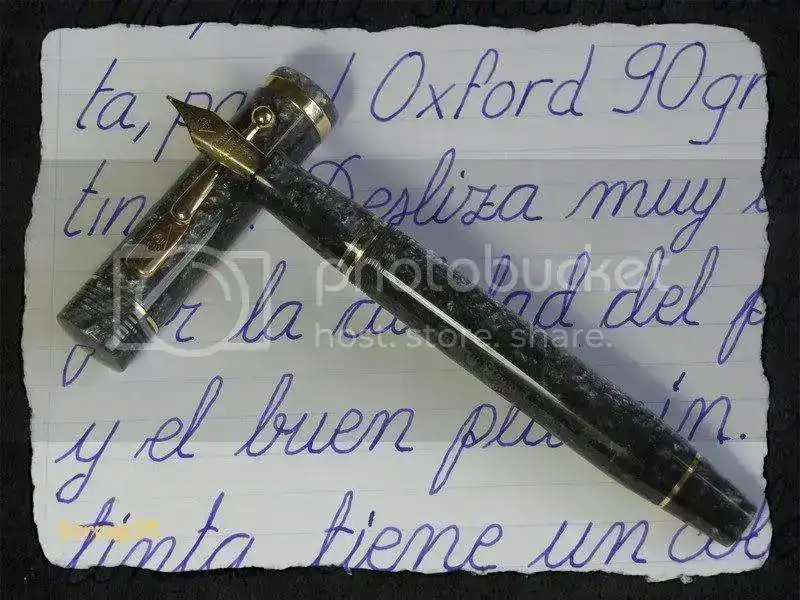 ta, Oxford 90gr
Desliza muy
la del
y el buen
tinta tiene un
photobucket
host. store. share.